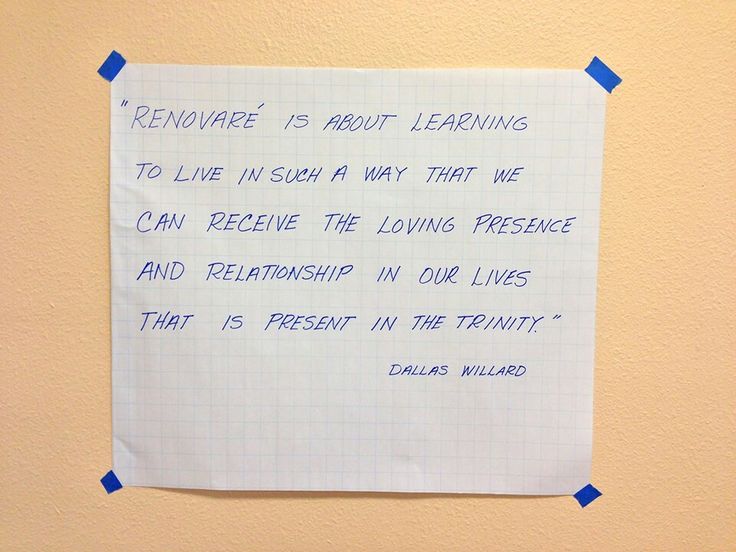 "RENOVARÉ IS ABOUT LEARNING
TO LIVE IN SUCH A WAY THAT WE
CAN RECEIVE THE LOVING PRESENCE
AND RELATIONSHIP IN OUR LIVES
THAT IS PRESENT IN THE TRINITY."
DALLAS WILLARD